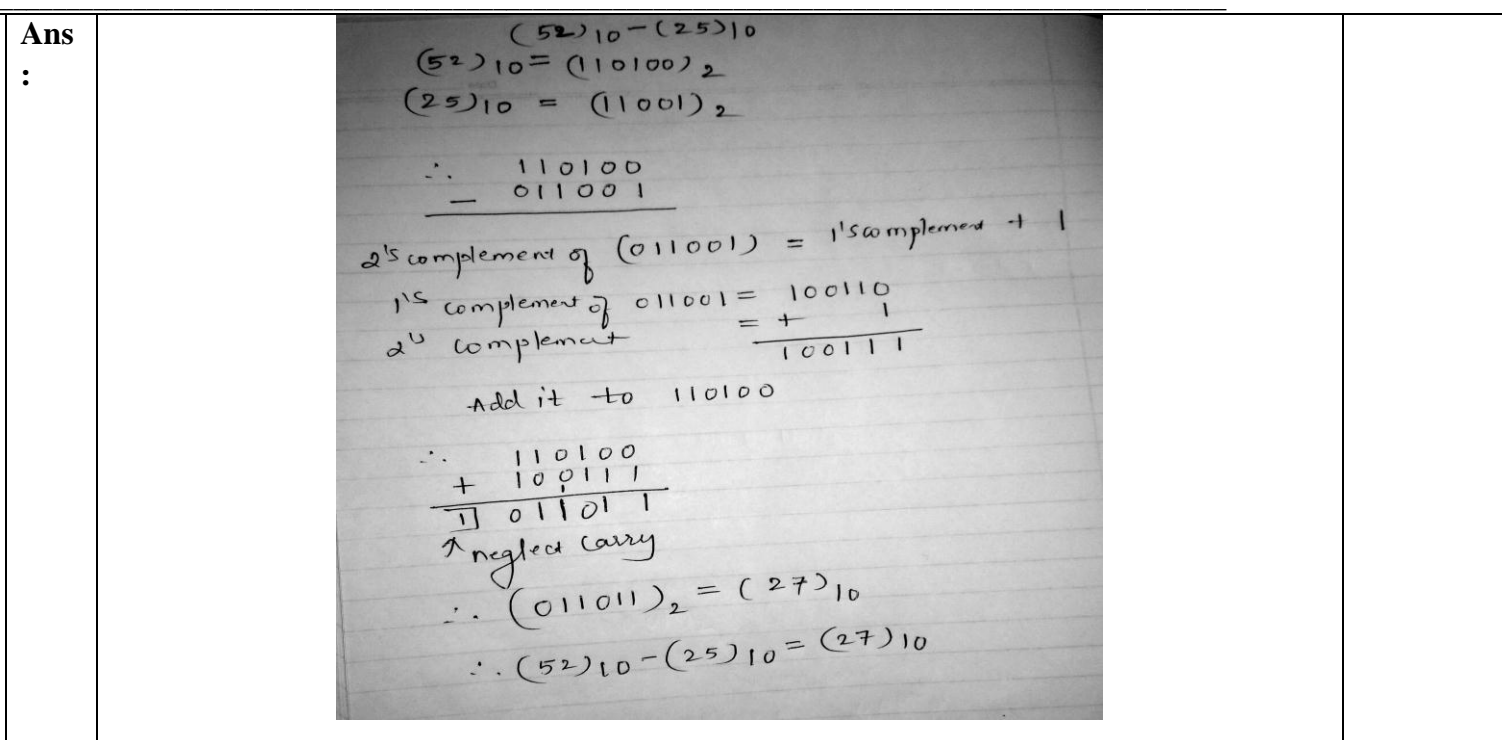 Ans
:
(52)10-(25)10
(52)10= (110100)2
(25)10 = (11001)2
∴ 110100
— 011001
2's complement of (011001) = 1's complement + 1
1's complement of 011001= 100110
2's complement = + 1
100111
Add it to 110100
∴ 110100
+ 100111
1 011011
↑ neglect carry
∴ (011011)2 = (27)10
∴ (52)10-(25)10=(27)10